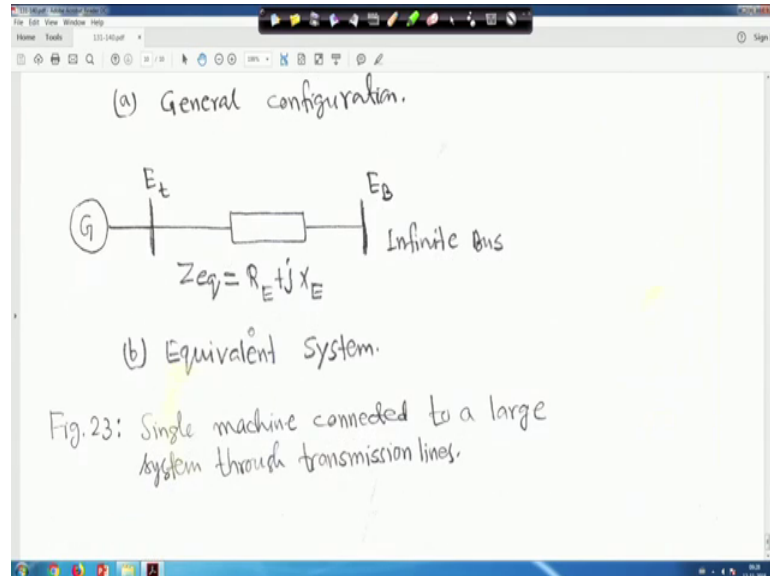 131-140.pdf - Adobe Acrobat Reader DC
File Edit View Window Help
Home Tools 131-140.pdf × Sign
(a) General configuration.
E_t E_B
G
Infinite Bus
Zeq = R_E + jX_E
(b) Equivalent System.
Fig. 23: Single machine connected to a large
system through transmission lines.